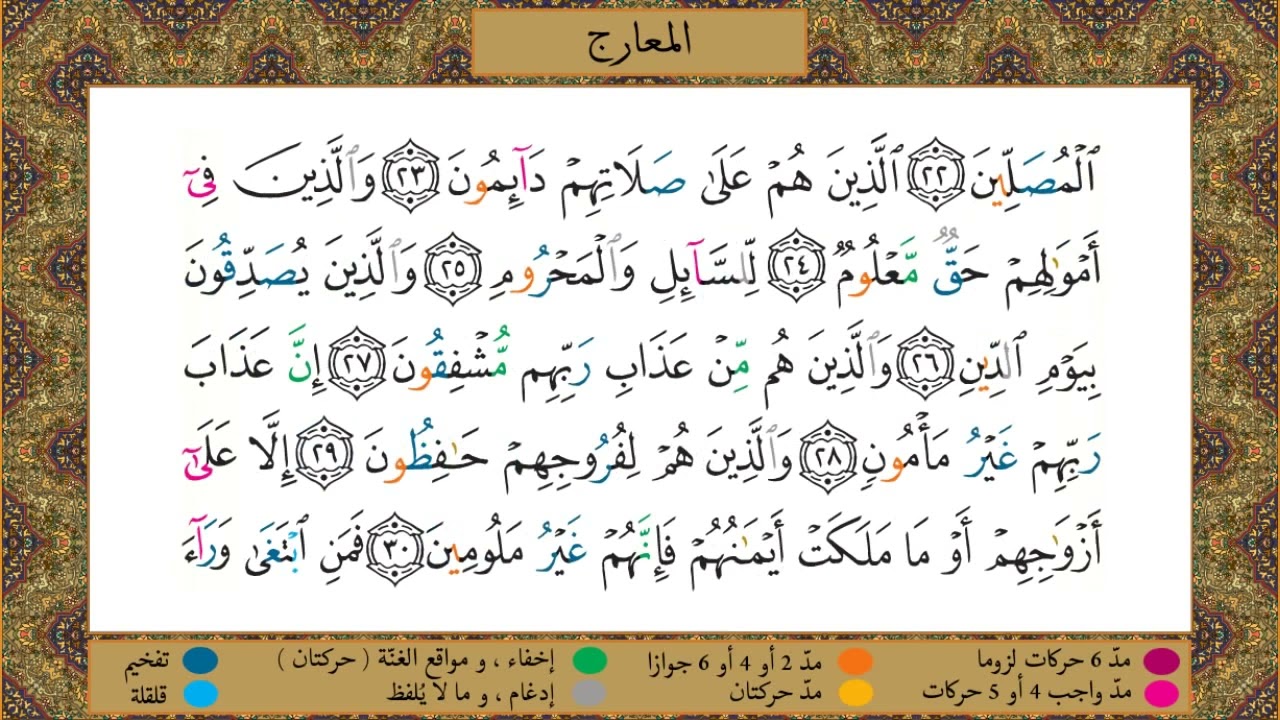 المعارج
ٱلْمُصَلِّينَ ٢٢ ٱلَّذِينَ هُمْ عَلَىٰ صَلَاتِهِمْ دَآئِمُونَ ٢٣ وَٱلَّذِينَ فِىٓ
أَمْوَٰلِهِمْ حَقٌّ مَّعْلُومٌ ٢٤ لِّلسَّآئِلِ وَٱلْمَحْرُومِ ٢٥ وَٱلَّذِينَ يُصَدِّقُونَ
بِيَوْمِ ٱلدِّينِ ٢٦ وَٱلَّذِينَ هُم مِّنْ عَذَابِ رَبِّهِم مُّشْفِقُونَ ٢٧ إِنَّ عَذَابَ
رَبِّهِمْ غَيْرُ مَأْمُونٍ ٢٨ وَٱلَّذِينَ هُمْ لِفُرُوجِهِمْ حَٰفِظُونَ ٢٩ إِلَّا عَلَىٰٓ
أَزْوَٰجِهِمْ أَوْ مَا مَلَكَتْ أَيْمَٰنُهُمْ فَإِنَّهُمْ غَيْرُ مَلُومِينَ ٣٠ فَمَنِ ٱبْتَغَىٰ وَرَآءَ
مدّ 6 حركات لزوما مدّ 2 أو 4 أو 6 جوازا إخفاء ، و مواقع الغنّة ( حركتان ) تفخيم
مدّ واجب 4 أو 5 حركات مدّ حركتان إدغام ، و ما لا يُلفظ قلقلة